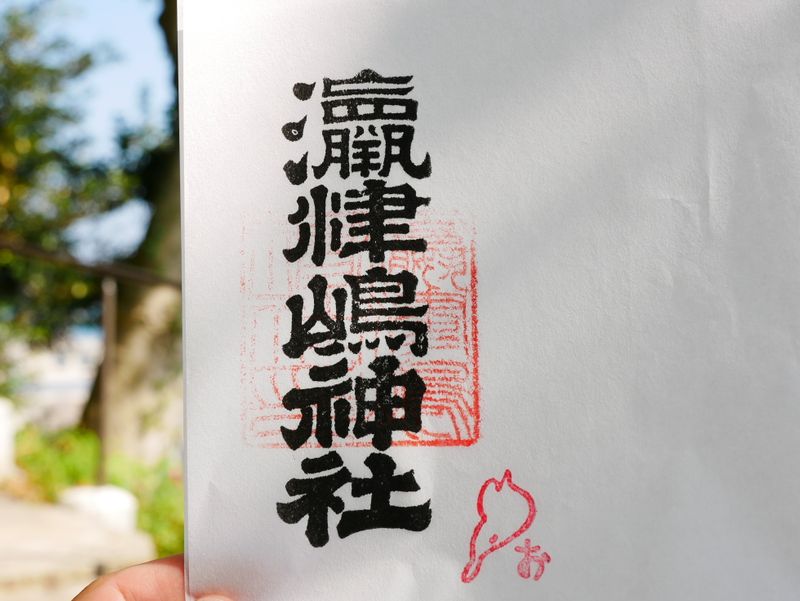 瀛津嶋神社
お